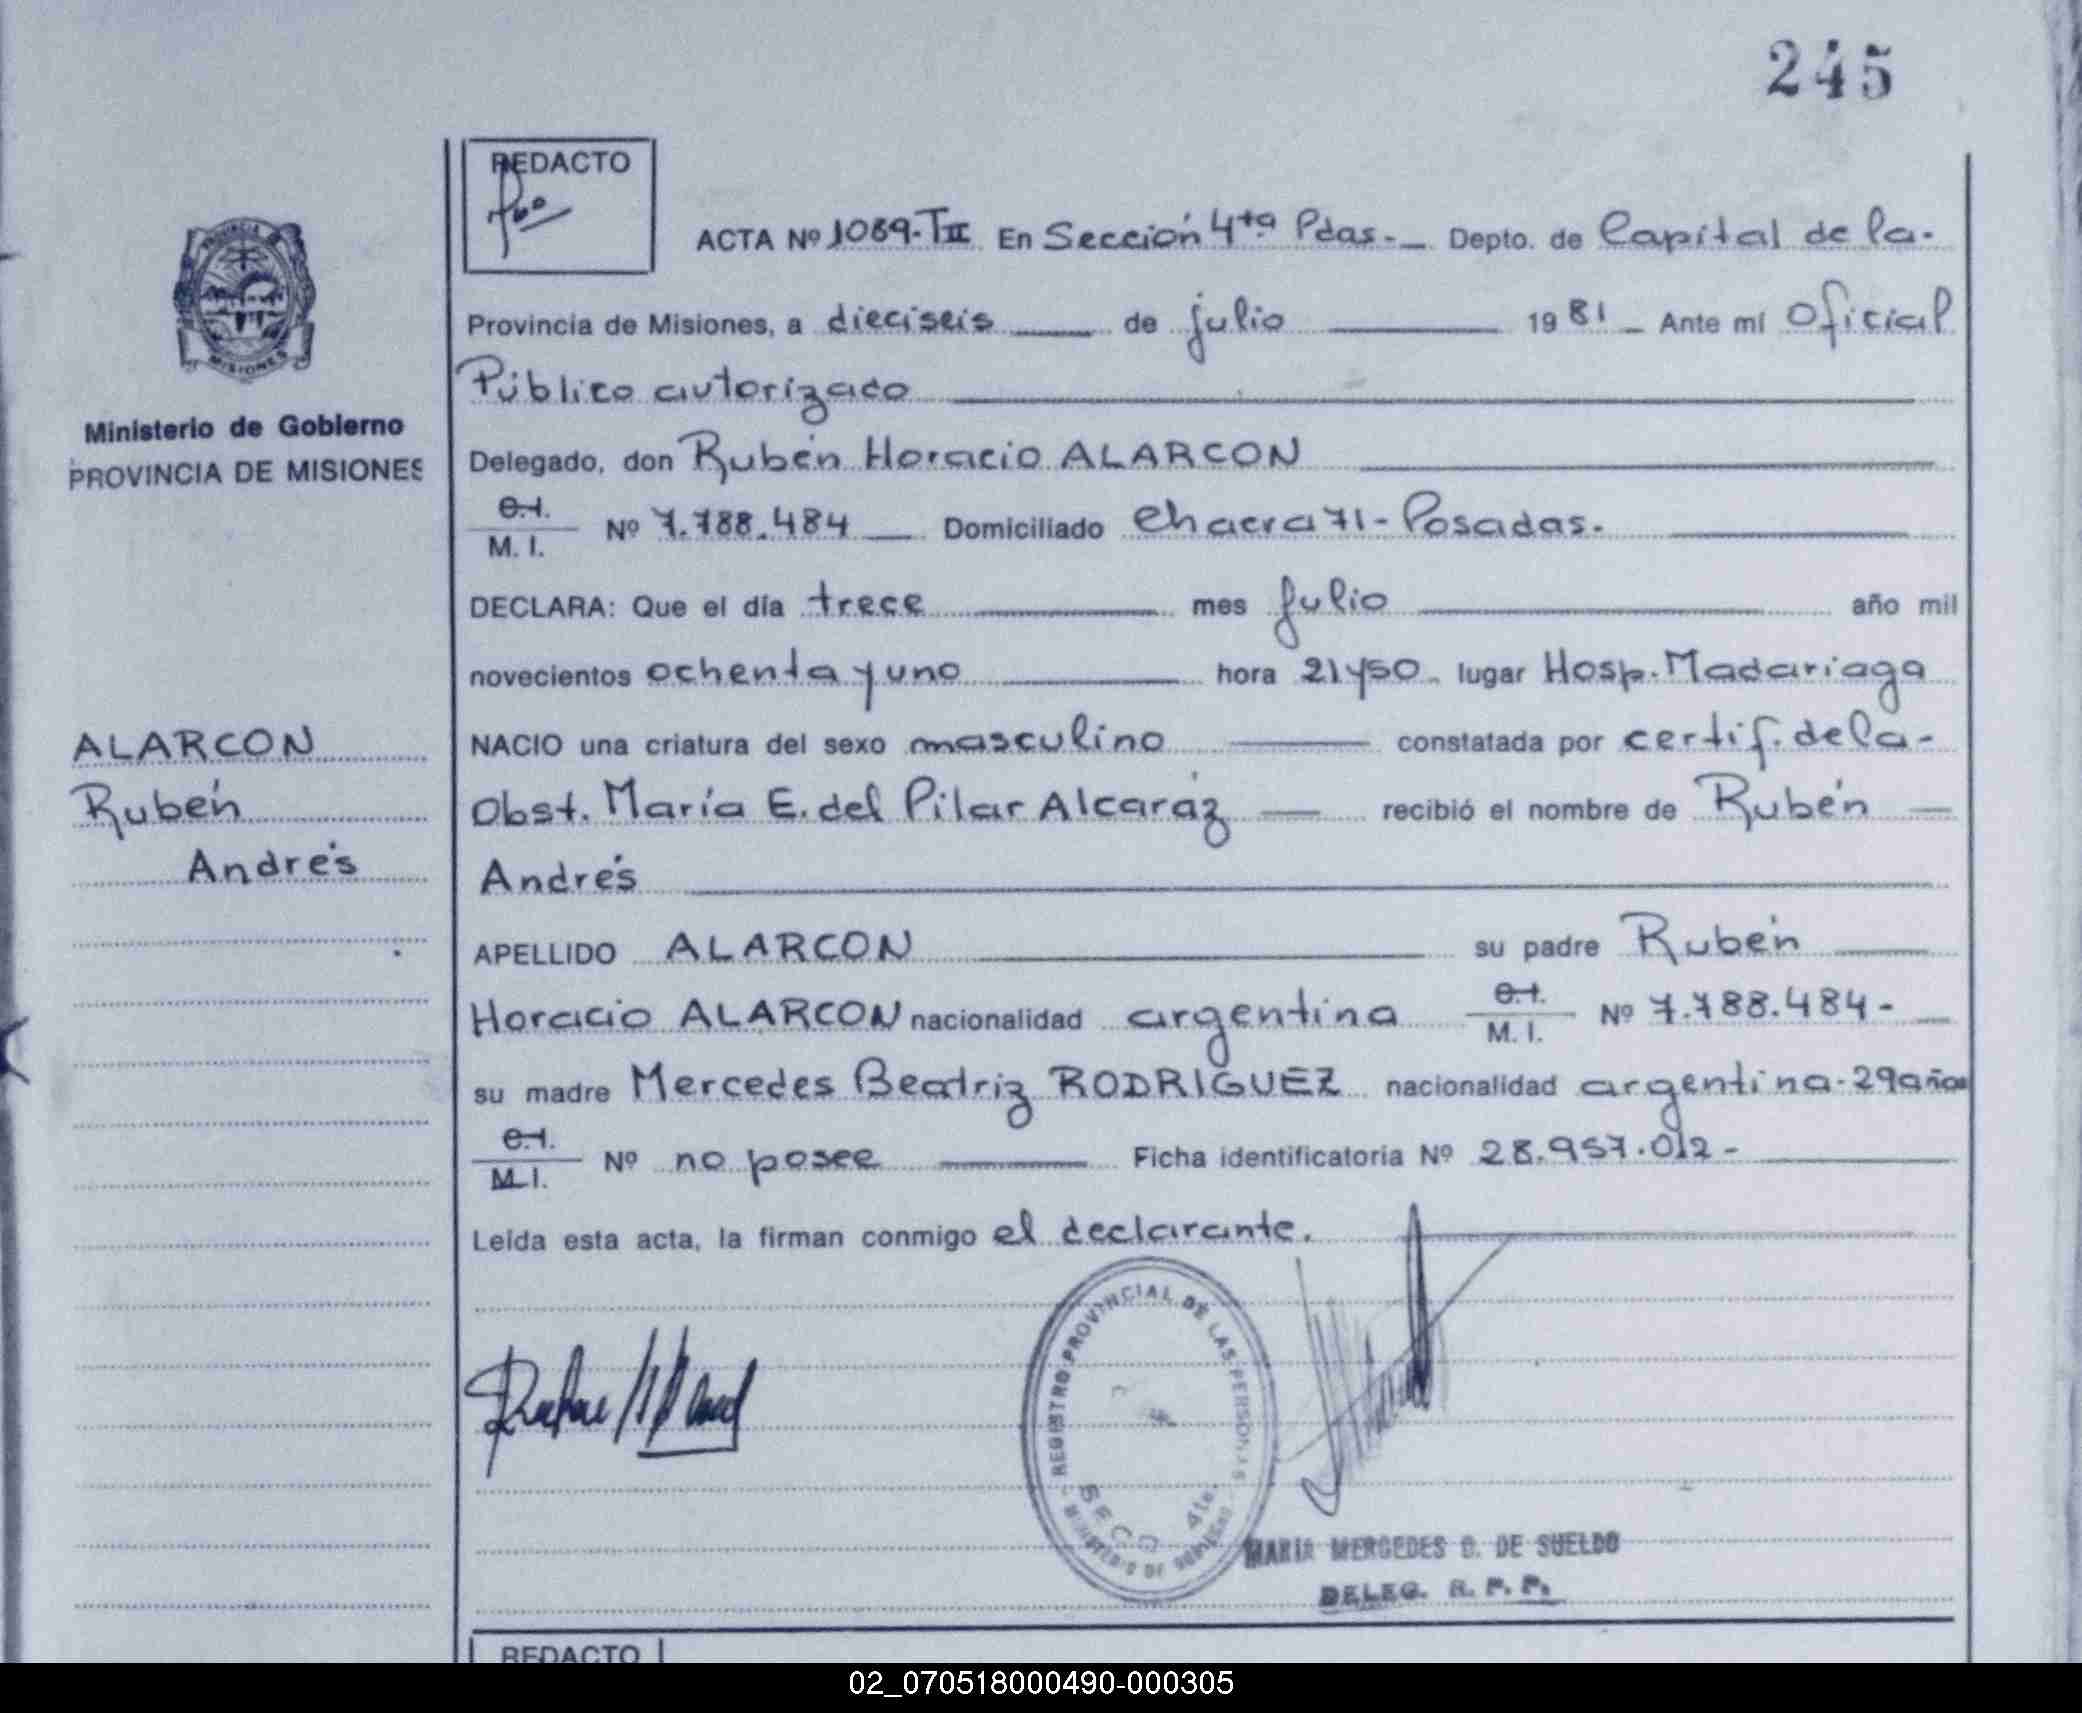 245
REDACTO
ACTA Nº 1069-TII En Sección 4ta Pdas.- Depto. de Capital de la-
Provincia de Misiones, a dieciseis de julio 1981 - Ante mí Oficial
Público autorizado
Ministerio de Gobierno
PROVINCIA DE MISIONES
Delegado, don Rubén Horacio ALARCON
C.I. M. I. Nº 7.788.484 Domiciliado Chacra 71 - Posadas.
DECLARA: Que el día trece mes julio año mil
novecientos ochenta y uno hora 21 y 50 lugar Hosp. Madariaga
ALARCON
Rubén
Andrés
NACIO una criatura del sexo masculino constatada por certif. de la-
Obst. María E. del Pilar Alcaráz recibió el nombre de Rubén
Andrés
APELLIDO ALARCON su padre Rubén
Horacio ALARCON nacionalidad argentina C.I. M. I. Nº 7.788.484-
su madre Mercedes Beatriz RODRIGUEZ nacionalidad argentina-29 años
C.I. M.I. Nº no posee Ficha identificatoria Nº 28.957.012-
Leída esta acta, la firman conmigo el declarante.
REGISTRO PROVINCIAL DE LAS PERSONAS
SECC. 4ta.
MINISTERIO DE GOBIERNO
MARIA MERCEDES G. DE SUELDO
DELEG. R. P. P.
REDACTO
02_070518000490-000305